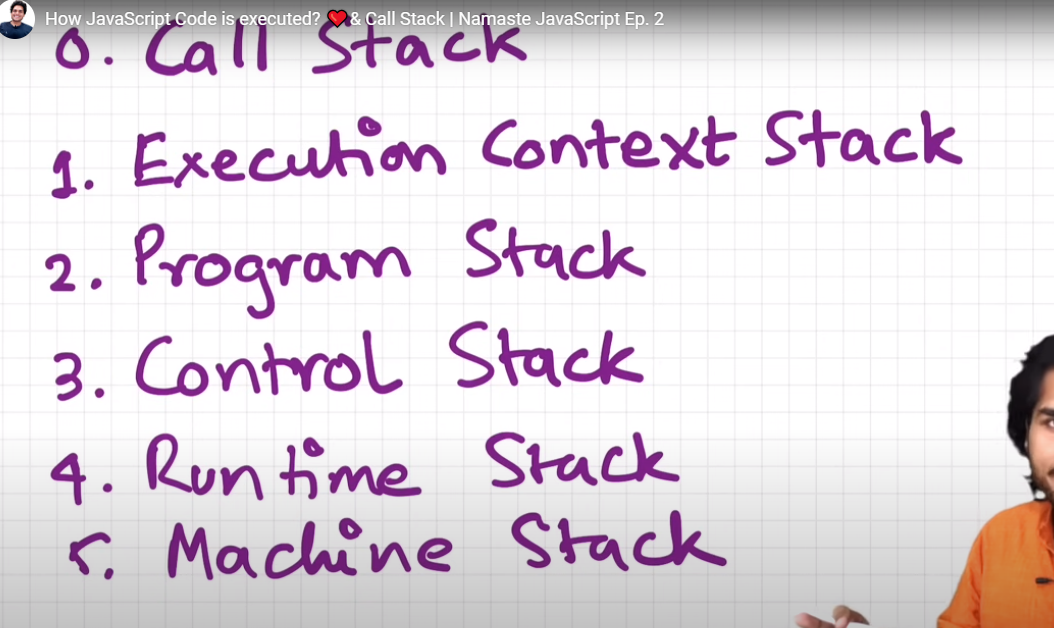 How JavaScript Code is executed? ❤️& Call Stack | Namaste JavaScript Ep. 2
0. Call Stack
1. Execution Context Stack
2. Program Stack
3. Control Stack
4. Runtime Stack
5. Machine Stack